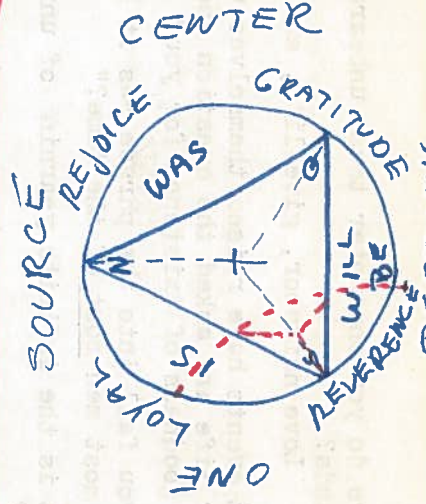 CENTER
GRATITUDE
REJOICE
WAS
SOURCE
N
WILL
BE
S
IS
REVERENCE
LOYAL
ONE